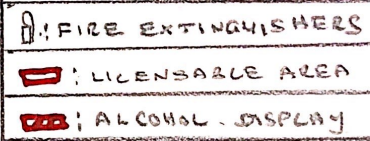 : FIRE EXTINGUISHERS
: LICENSABLE AREA
: ALCOHOL DISPLAY